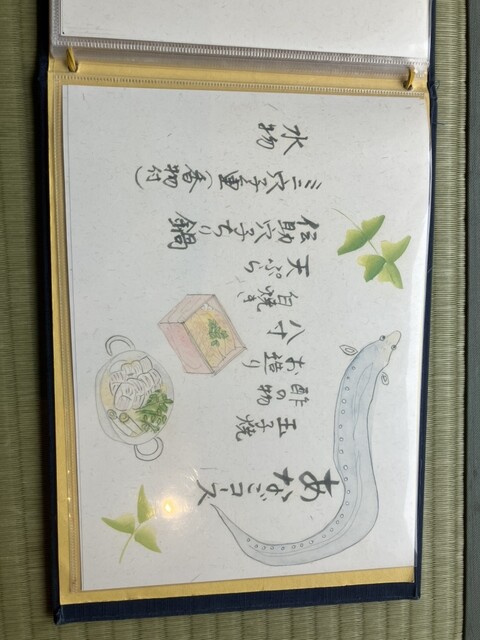 あなごコース
玉子焼
酢の物
お造り
八寸
白焼き
天ぷら
伝助穴子ちり鍋
ミニ穴子重（香物付）
水物